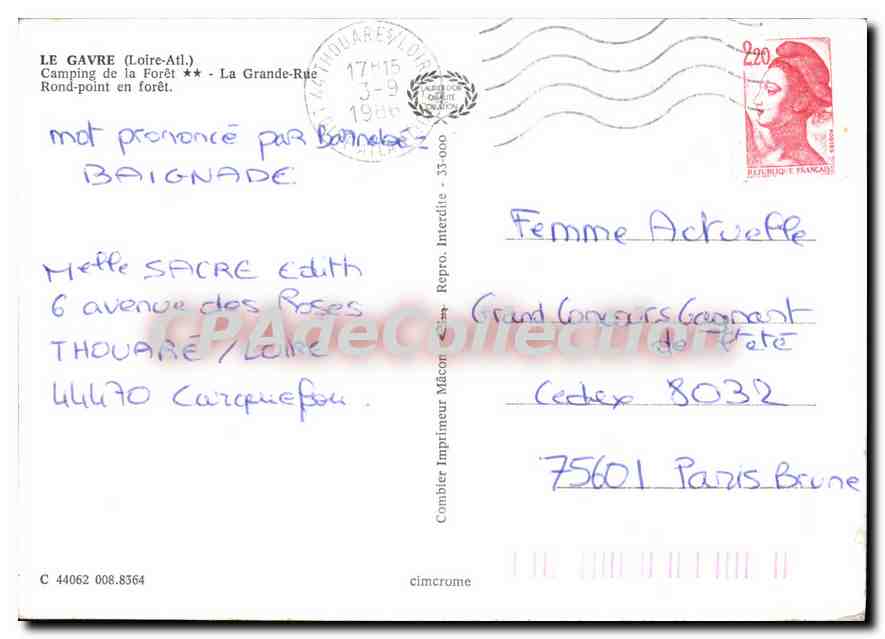 LE GAVRE (Loire-Atl.)
Camping de la Forêt ★★ - La Grande-Rue
Rond-point en forêt.
mot prononcé par
BAIGNADE
Melle SACRE Edith
6 avenue des Roses
THOUARÉ / LOIRE
44470 Carquefou.
C 44062 008.8364
Combier Imprimeur Mâcon - Repro. Interdite - 33-000
44 THOUARE S/ LOIRE
17H15
3-9
1986
2,20
REPUBLIQUE FRANÇAISE
Femme Actuelle
Grand Concours Gagnant
de l'été
Cedex 8032
75601 Paris Brune
cimcrome
CPAdeCollection